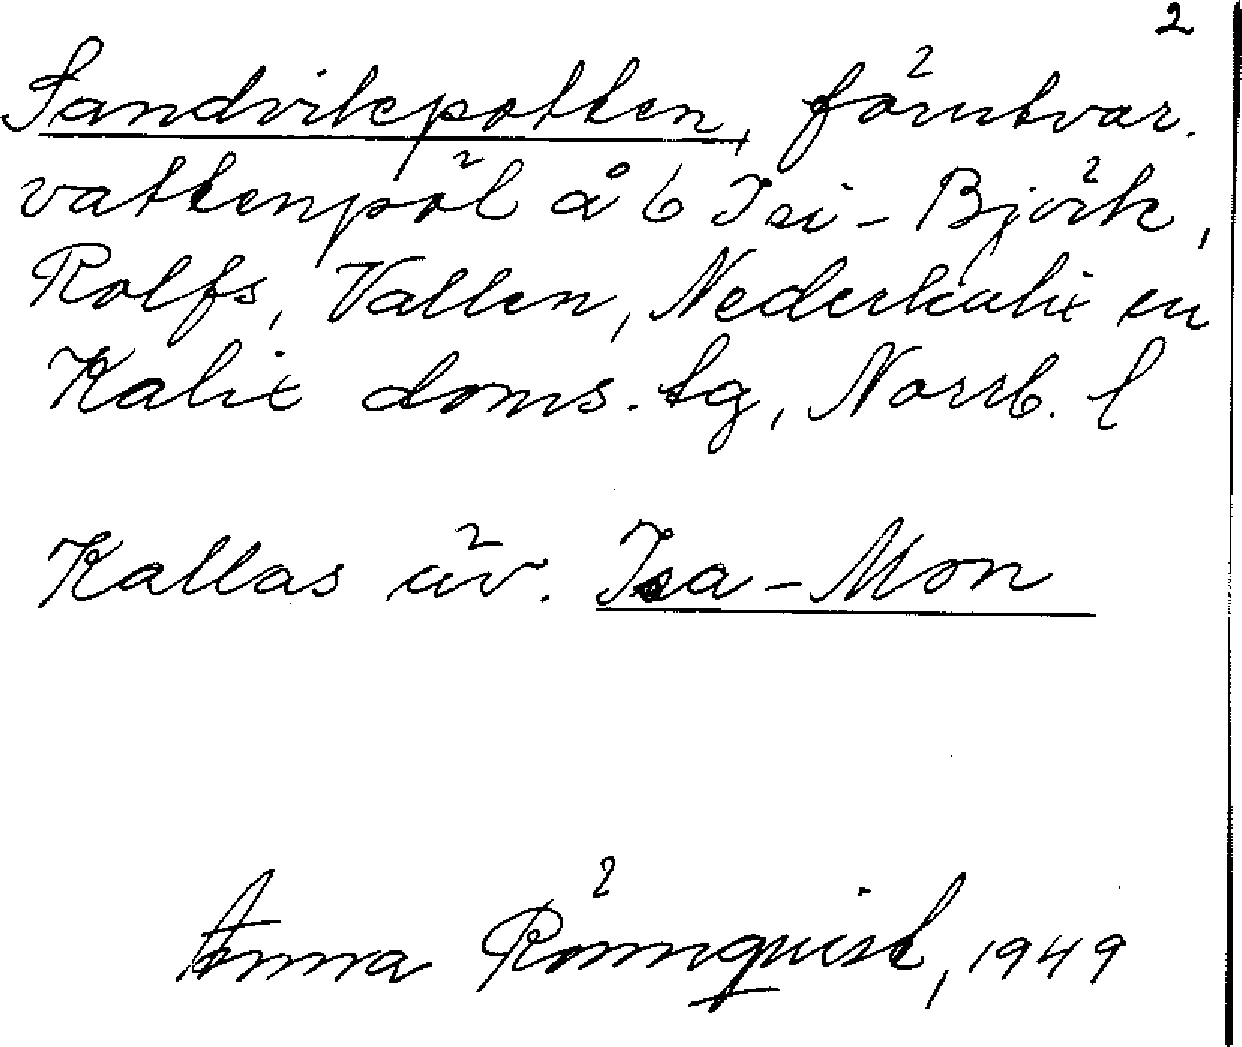 2
Sandvikspotten, förutvar.
vattenpöl å b Isi - Björk,
Rolfs, Vallen, Nederkalix sn
Kalix doms. tg, Norrb. l
Kallas äv. Isa - Mon
Anna Rönnquist, 1949